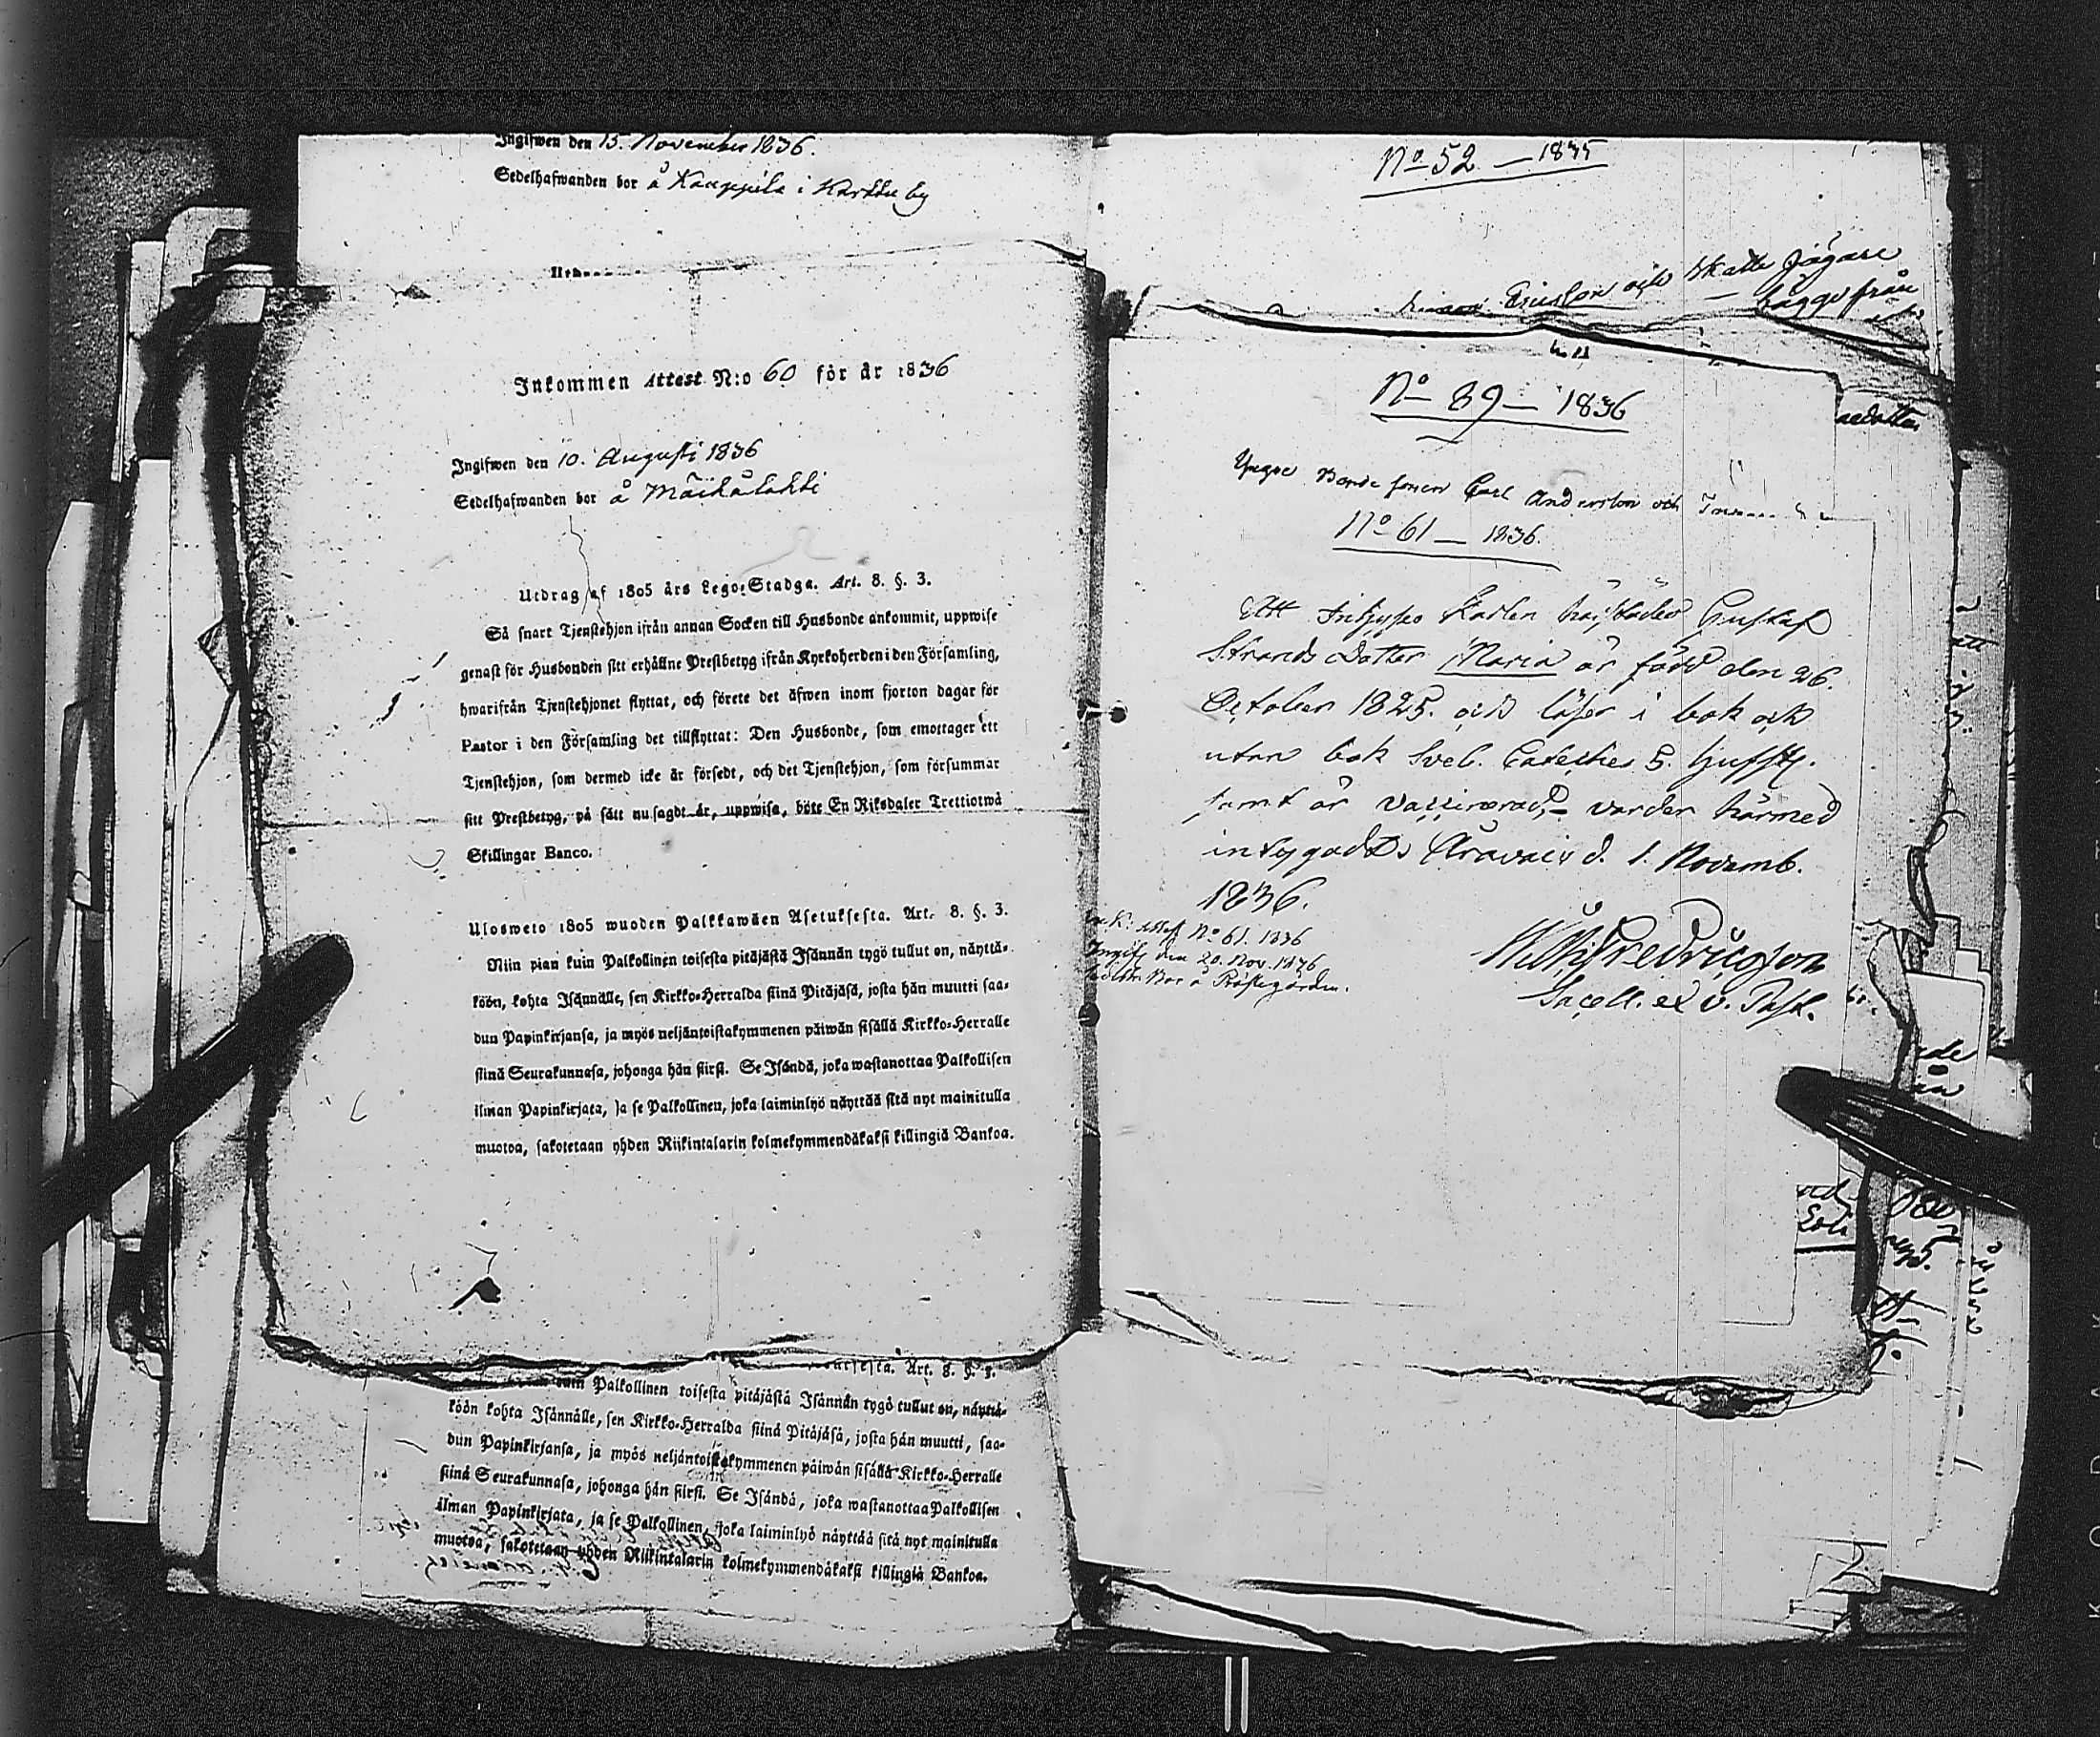 Ingifwen den 15. November 1836.
Sedelhafwanden bor å Kauppila i Karttu by
Inkommen Attest N:o 60 för år 1836
Ingifwen den 10. Augusti 1836
Sedelhafwanden bor å
Utdrag af 1805 års Lego-Stadga. Art. 8. §. 3.
Så snart Tjenstehjon ifrån annan Socken till Husbonde ankommit, uppwise
genast för Husbonden sitt erhållne Prestbetyg ifrån Kyrkoherden i den Församling,
hwarifrån Tjenstehjonet flyttat, och förete det äfwen inom fjorton dagar för
Pastor i den Församling det tillflyttat: Den Husbonde, som emottager ett
Tjenstehjon, som dermed icke är försedt, och det Tjenstehjon, som försummar
sitt Prestbetyg, på sätt nu sagdt är, uppwisa, böte En Riksdaler Trettiotwå
Skillingar Banco.
Ulosweto 1805 wuoden Palkkawäen Asetuksesta. Art. 8. §. 3.
Niin pian kuin Palkollinen toisesta pitäjästä Isännän tygö tullut on, näyttä-
köön, kohta Isännälle, sen Kirkko-Herralda siinä Pitäjäsä, josta hän muutti saa-
dun Papinkirjansa, ja myös neljäntoistakymmenen päiwän sisällä Kirkko-Herralle
siinä Seurakunnasa, johonga hän siirsi. Se Isändä, joka wastanottaa Palkollisen
ilman Papinkirjata, ja se Palkollinen, joka laiminlyö näyttää sitä nyt mainitulla
muotoa, sakotetaan yhden Riikintalarin kolmekymmendäkaksi killingiä Bankoa.
Art. 8. §. 3.
kuin Palkollinen toisesta pitäjästä Isännän tygö tullut on, näyttä-
köön kohta Isännälle, sen Kirkko-Herralda siinä Pitäjäsä, josta hän muutti, saa-
dun Papinkirjansa, ja myös neljäntoistakymmenen päiwän sisällä Kirkko-Herralle
siinä Seurakunnasa, johonga hän siirsi. Se Isändä, joka wastanottaa Palkollisen
ilman Papinkirjata, ja se Palkollinen, joka laiminlyö näyttää sitä nyt mainitulla
muotoa, sakotetaan yhden Riikintalarin kolmekymmendäkaksi killingiä Bankoa.
No 52 — 1835
Ericsson och Skatte Jägare
bägge från
No 89 — 1836
Ynge Bonde sonen Carl Andersson och
No 61 — 1836.
Att Gustaf
Strands Dotter Maria är född den 26.
October 1825. och läser i bok och
utan bok Sveb. Cateches 5. hufst.
samt är vaccinerad, – varder härmed
intygadt. Oravais d. 1. Novemb.
1836.
Fredricsson
Sacell. et v. Past.
No 61. 1836
Ingifv. den 20. Nov. 1836
bor å Prästegården.